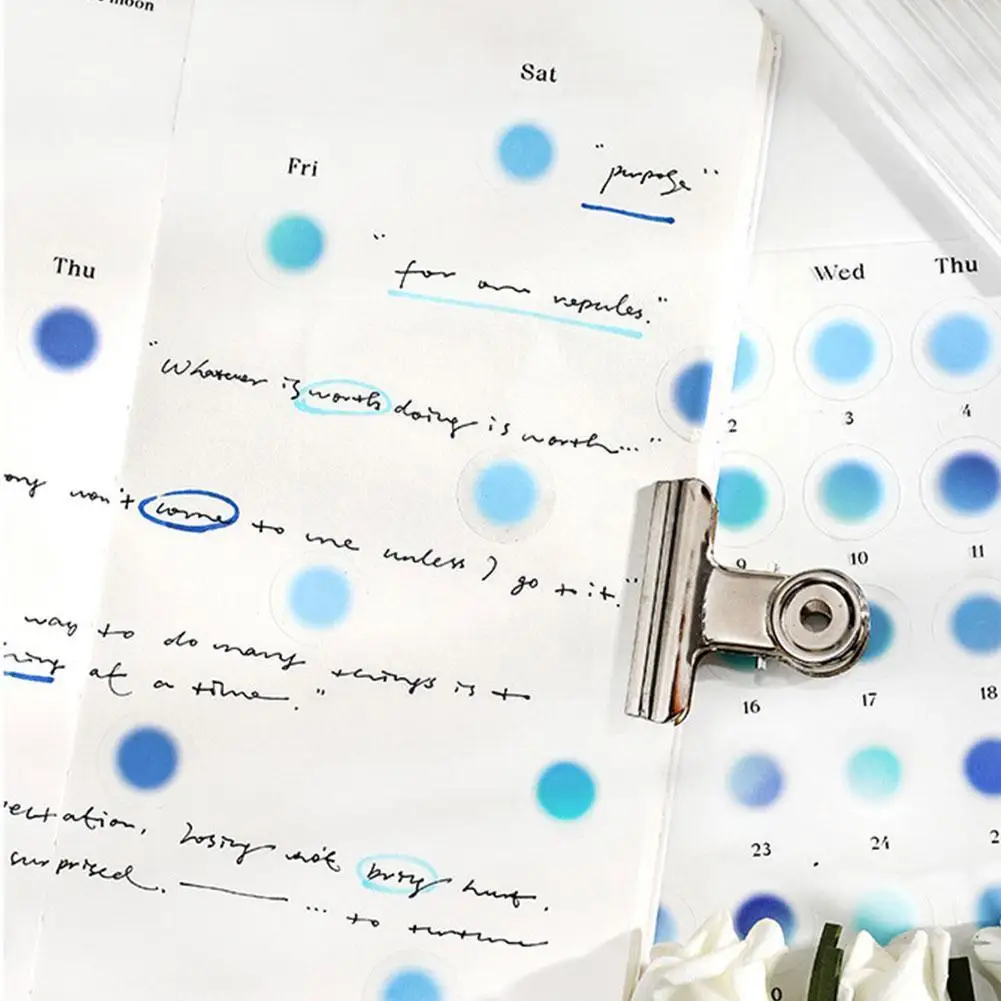 moon
Sat
"purpose"
Fri
Wed
Thu
Thu
"for one repules."
"Whatever is worth doing is worth..."
3
4
2
won't come to me unless I go to it."
9
10
11
way to do many things is to
at a time."
16
17
18
ectation, losing not bring hurt.
23
24
2
surprised. ... to
0